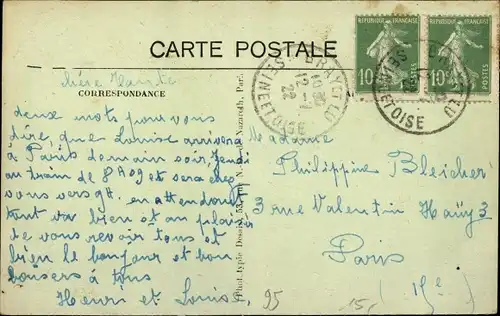 CARTE POSTALE
CORRESPONDANCE
REPUBLIQUE FRANÇAISE
10
POSTES
REPUBLIQUE FRANÇAISE
10
POSTES
BRAY ET LU
22
SEINE ET OISE
chère Tante
deux mots pour vous
dire que Louise arrivera
à Paris demain soir, Jeudi
au train de et sera chez
vous vers 9h. en attendant
tout va bien et au plaisir
de vous revoir tous et
bien le bonjour et bon
baisers à tous
Henri et Louise
Madame
Philippine Bleicher
3 rue Valentin Haüy 3
Paris
95
15
N.-D. de Nazareth, Par.